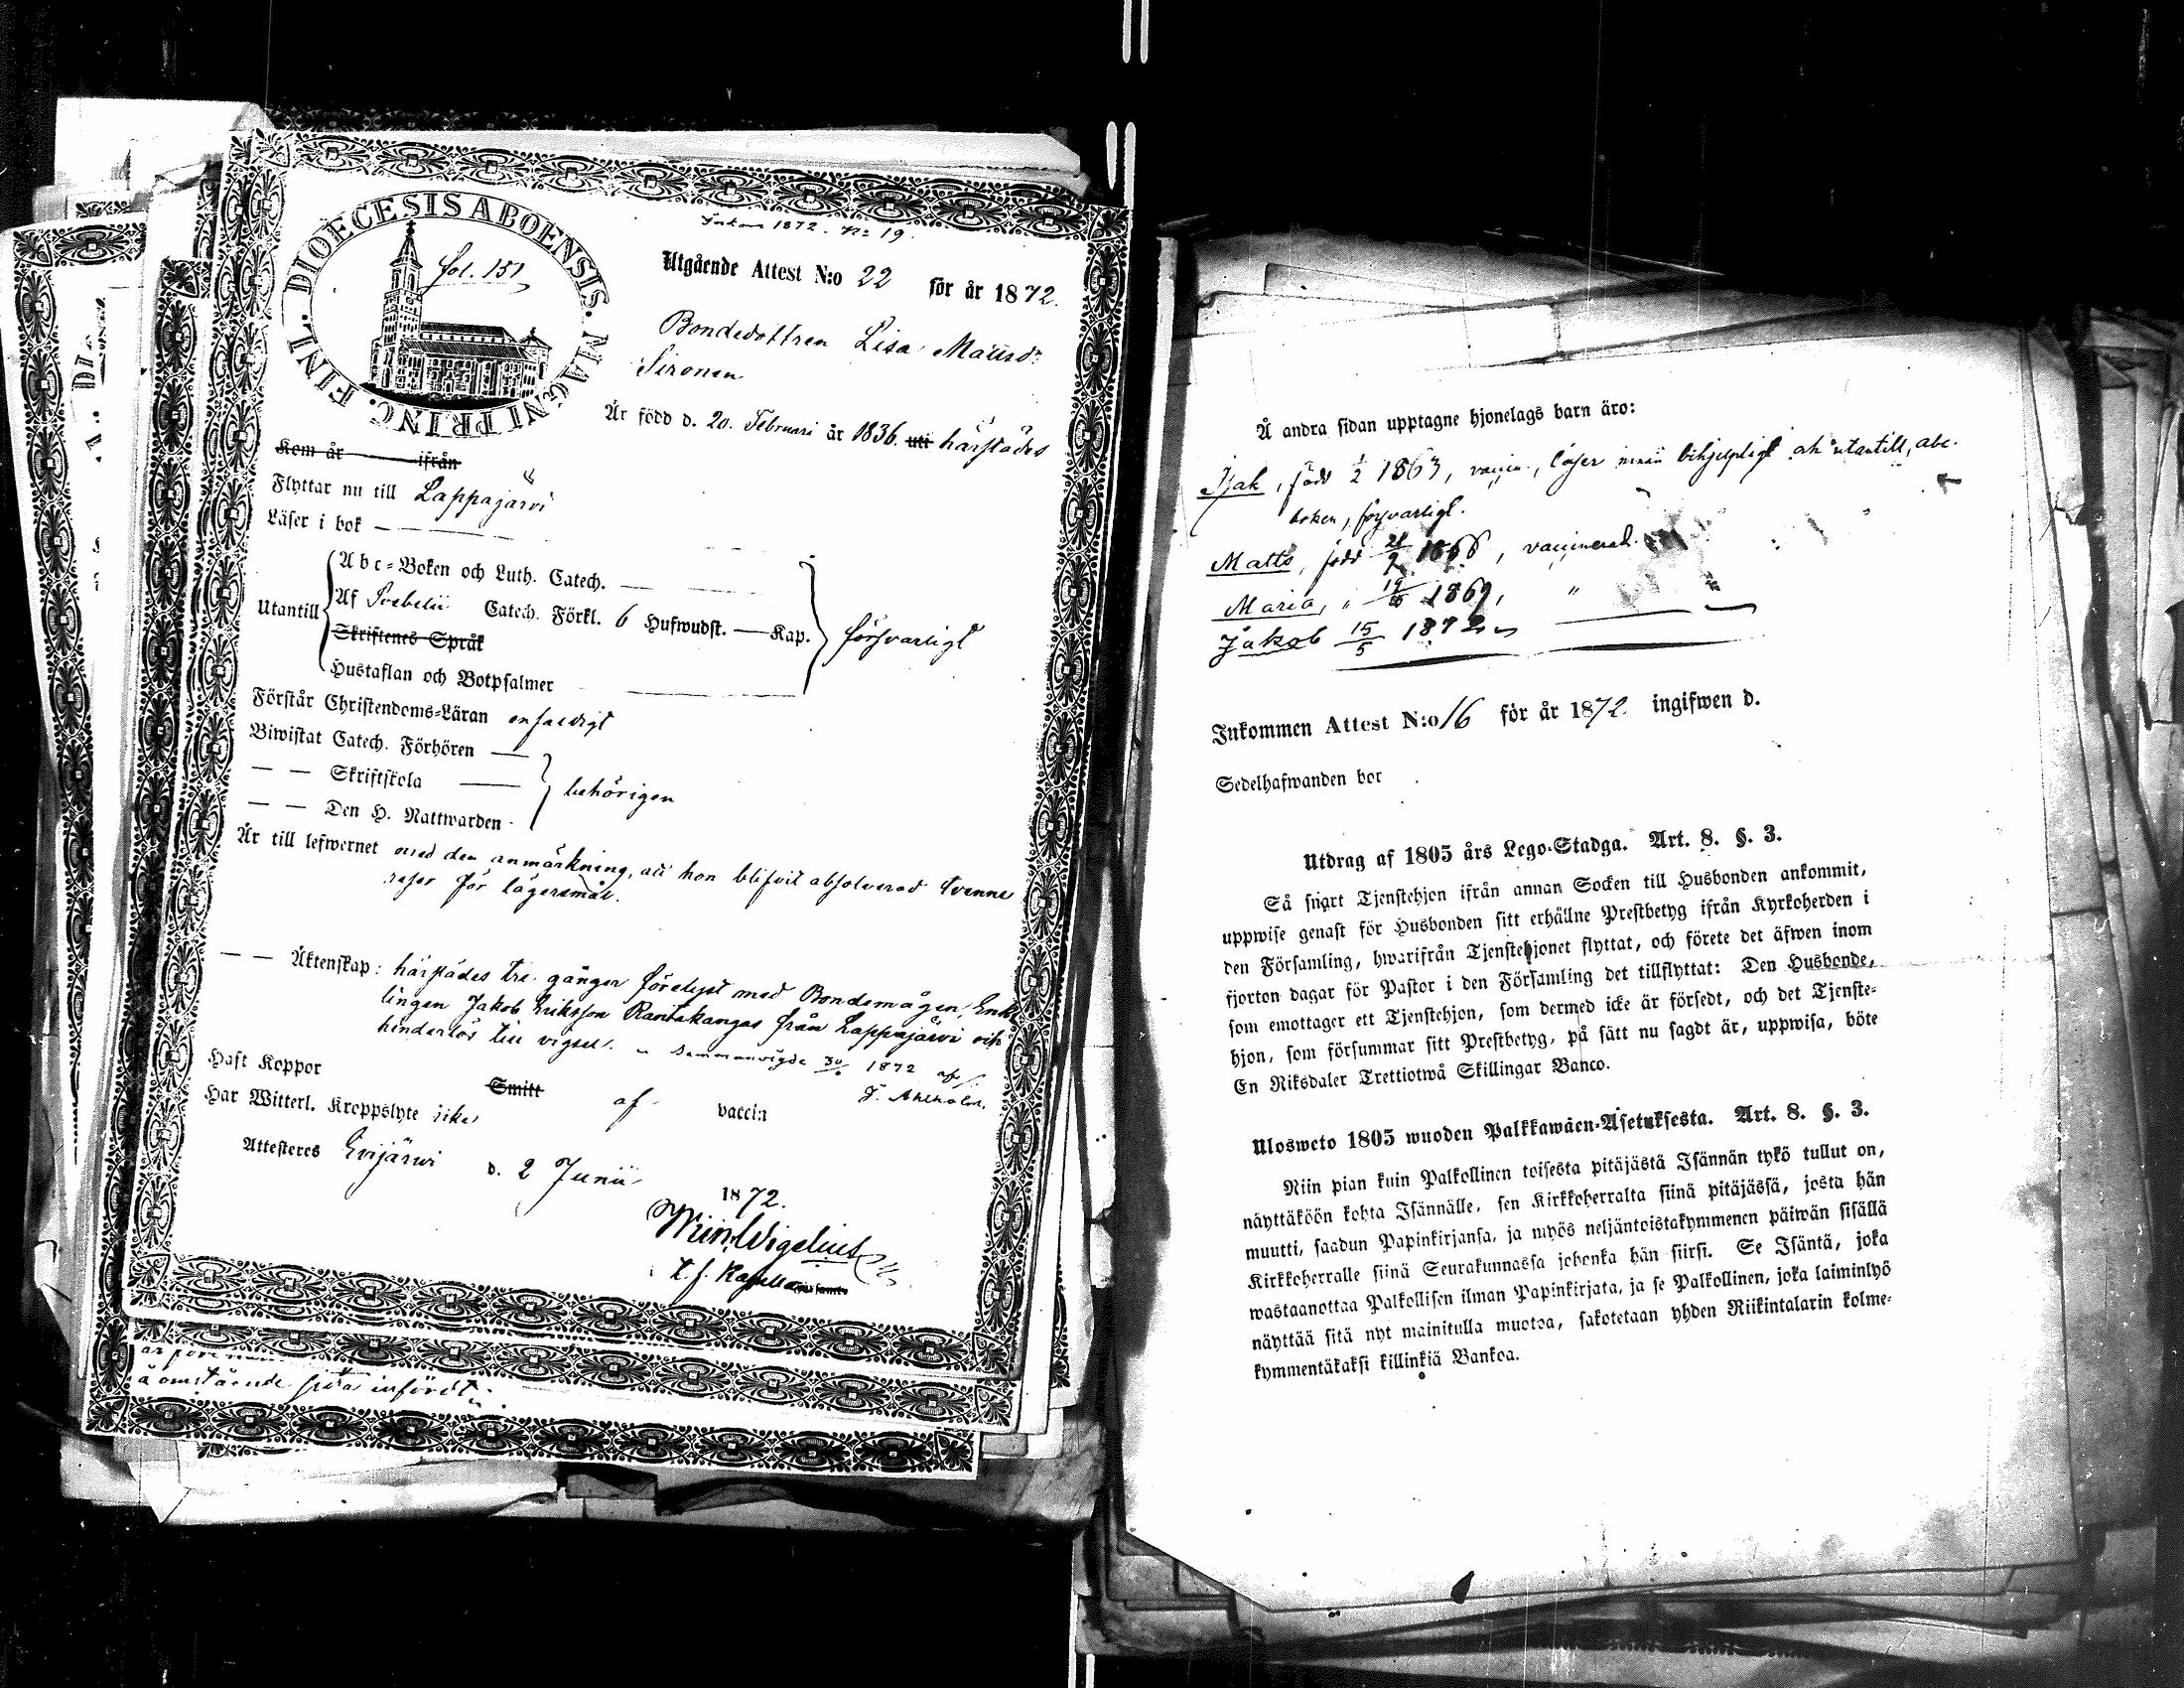 Inkom 1872. No 19.
DIOECESIS ABOENSIS. MAGNI PRINC. FINL.
fol. 151
Utgående Attest N:o 22 för år 1872.
Bondedottren Lisa Mattsdr
Sironen
Är född d. 20. Februari år 1836. uti härstädes
Kom år ifrån
Flyttar nu till Lappajärvi
Läser i bok
Utantill
Abc-Boken och Luth. Catech.
Af Svebelii Catech. Förkl. 6 Hufwudst. Kap. försvarligt
Skriftenes Språk
Hustaflan och Botpsalmer
Förstår Christendoms-Läran enfaldigt
Biwistat Catech. Förhören
— — Skriftskola behörigen
— — Den H. Nattwarden
Är till lefwernet med den anmärkning, att hon blifvit absolverad tvenne
resor för lägersmål.
— — Äktenskap: härstädes tre gånger förelyst med Bondemågen, Enk
lingen Jakob Eriksson Rantakangas från Lappajärvi och
hinderlös till vigsel. Sammanvigde 30/6 1872 af
J. Ahlholm.
Haft Koppor Smitt af vaccin
Har Witterl. Kroppslyte icke
Attesteres Evijärvi d. 2 Junii
1872.
Wigelius
t. f. Kapellan
å omstående sida infördt.
Å andra sidan upptagne hjonelags barn äro:
Isak, född 1/2 1863, vaccin., läser innan bihjelpligt och utantill, abc-
boken, försvarligt.
Matts, född 1866, vaccinerad.
Maria, " 1869, "
Jakob 15/5 1872
Inkommen Attest N:o 16 för år 1872 ingifwen d.
Sedelhafwanden bor
Utdrag af 1805 års Lego-Stadga. Art. 8. §. 3.
Så snart Tjenstehjon ifrån annan Socken till Husbonden ankommit,
uppwise genast för Husbonden sitt erhållne Prestbetyg ifrån Kyrkoherden i
den Församling, hwarifrån Tjenstehjonet flyttat, och förete det äfwen inom
fjorton dagar för Pastor i den Församling det tillflyttat: Den Husbonde,
som emottager ett Tjenstehjon, som dermed icke är försedt, och det Tjenste-
hjon, som försummar sitt Prestbetyg, på sätt nu sagdt är, uppwisa, böte
En Riksdaler Trettiotwå Skillingar Banco.
Ulosweto 1805 wuoden Palkkawäen-Asetuksesta. Art. 8. §. 3.
Niin pian kuin Palkollinen toisesta pitäjästä Isännän tykö tullut on,
näyttäköön kohta Isännälle, sen Kirkkoherralta siinä pitäjässä, josta hän
muutti, saadun Papinkirjansa, ja myös neljäntoistakymmenen päiwän sisällä
Kirkkoherralle siinä Seurakunnassa johonka hän siirsi. Se Isäntä, joka
wastaanottaa Palkollisen ilman Papinkirjata, ja se Palkollinen, joka laiminlyö
näyttää sitä nyt mainitulla muotoa, sakotetaan yhden Riikintalarin kolme-
kymmentäkaksi killinkiä Bankoa.